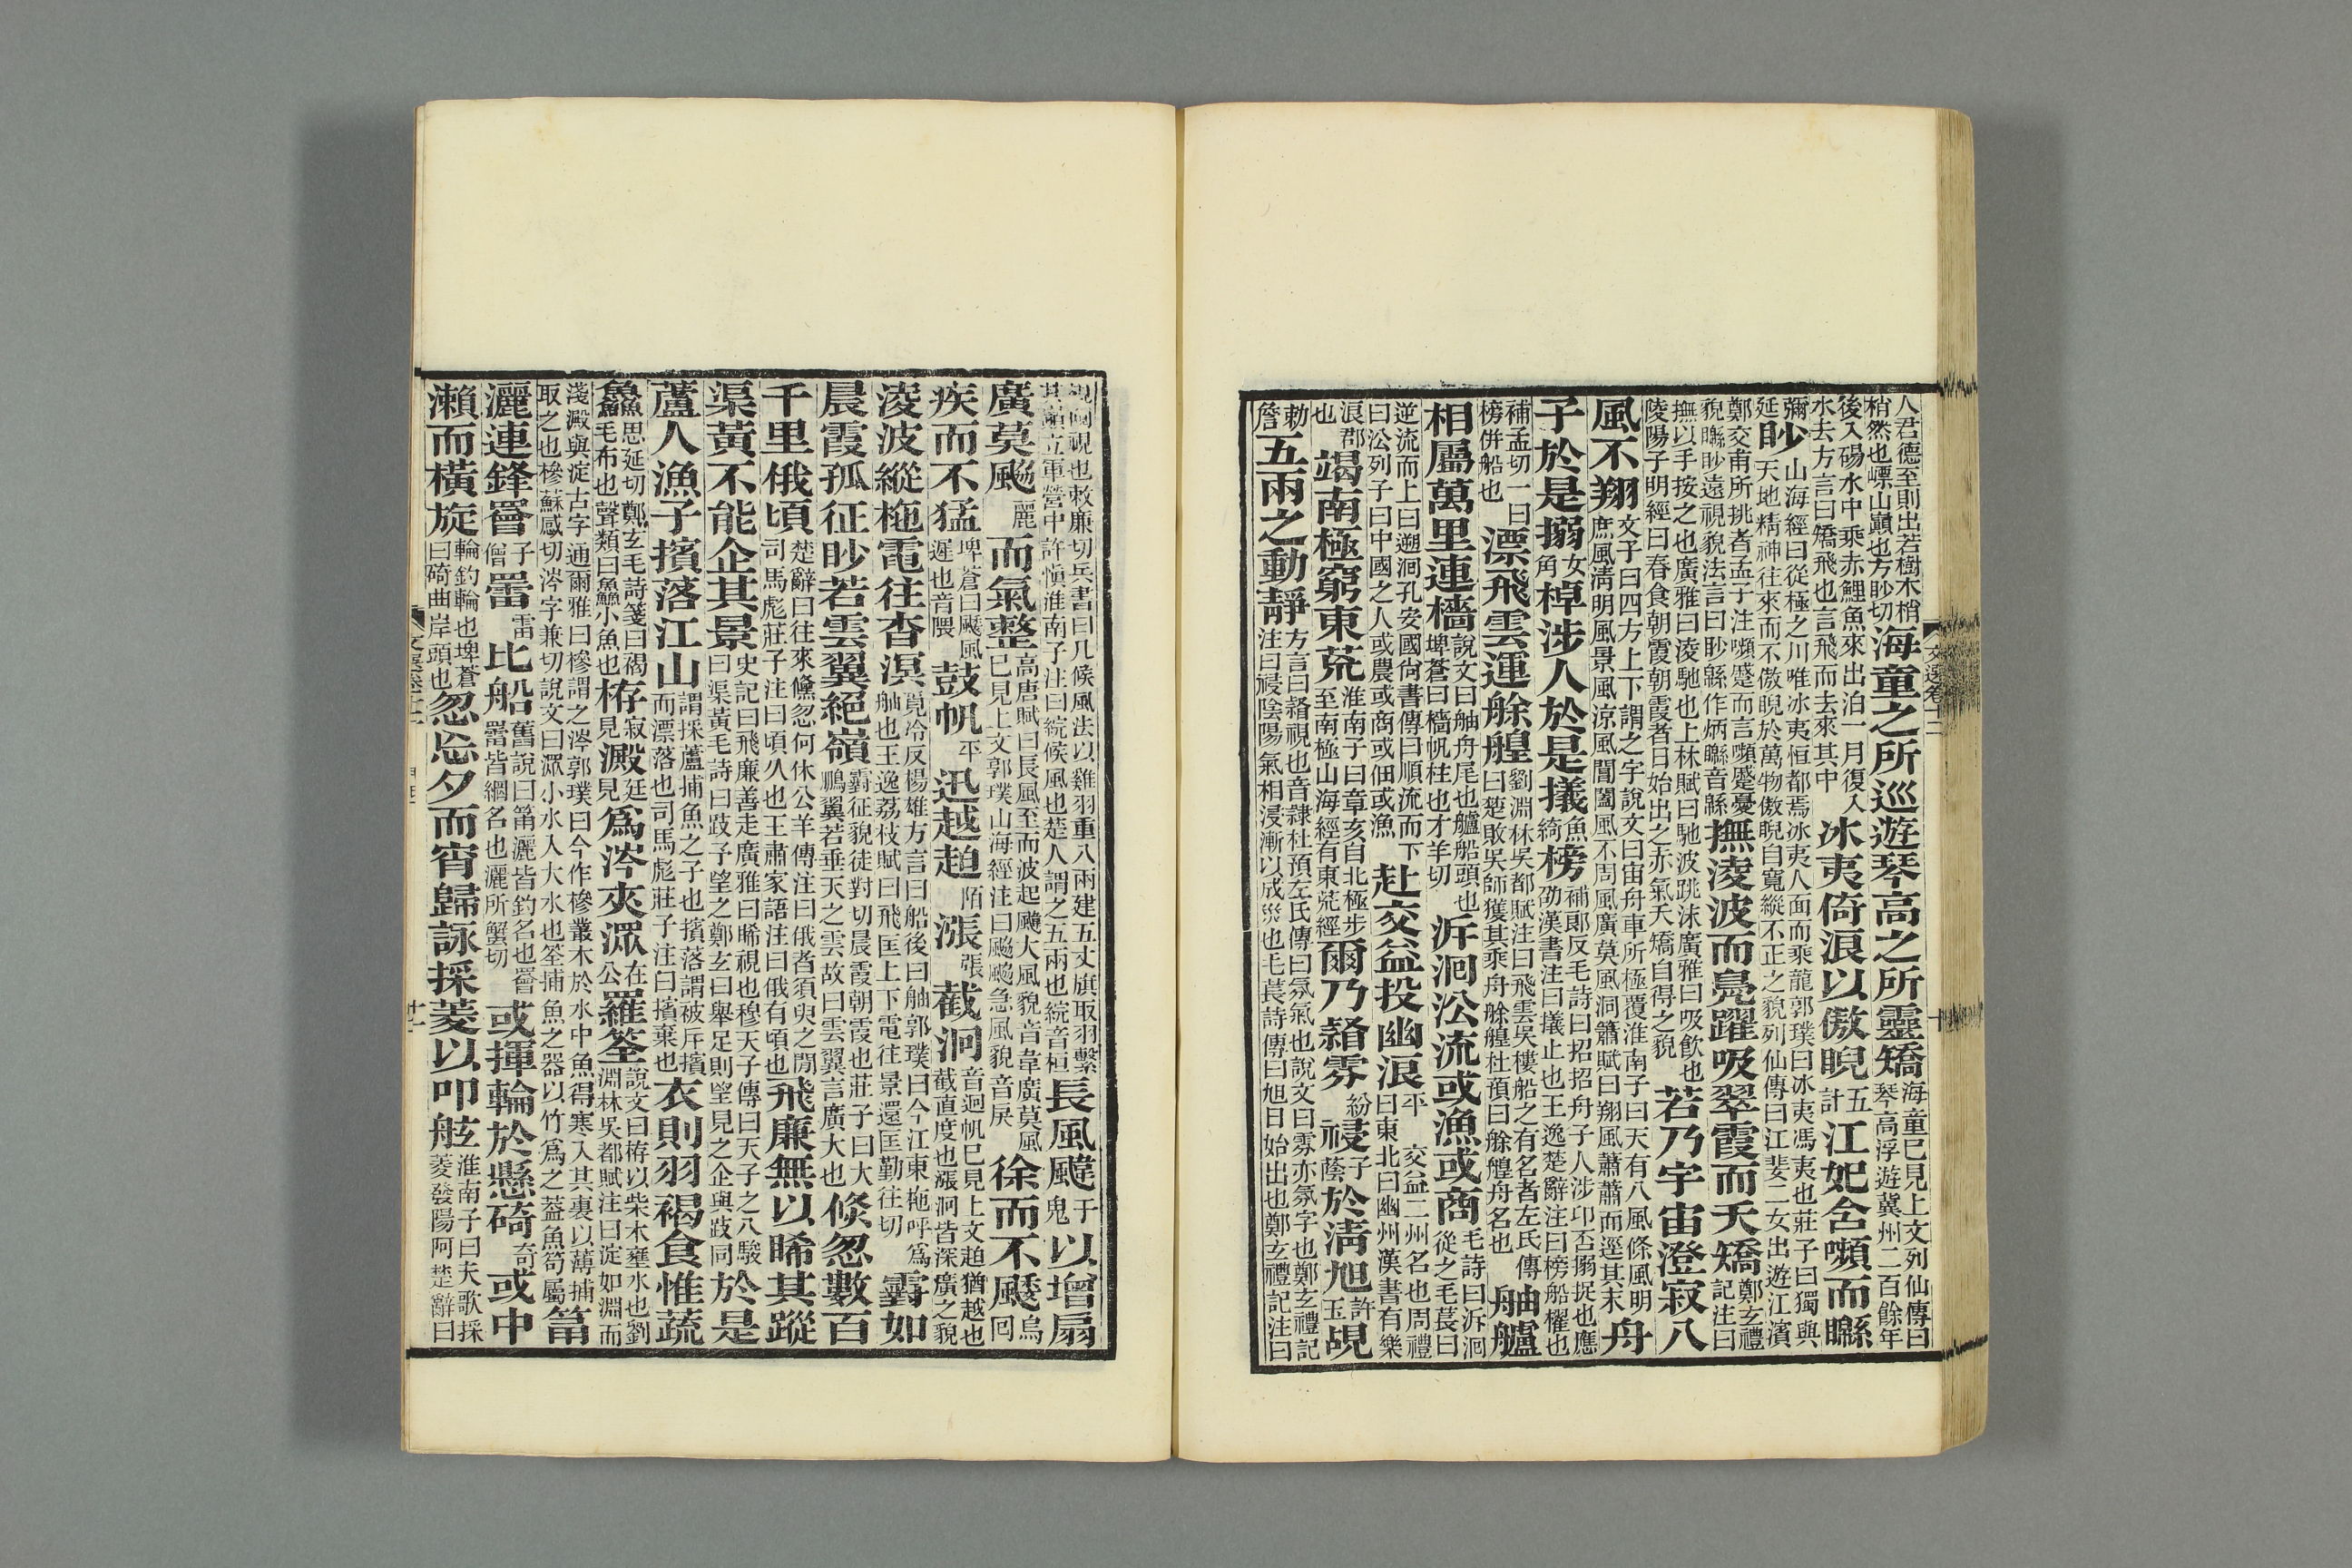 人君德至則出若樹木梢梢然也㟽山巔也方眇切海童之所巡遊琴高之所靈矯海童已見上文列仙傳曰琴高浮遊冀州二百餘年
後入碭水中乘赤鯉魚來出泊一月復入水去方言曰矯飛也言飛而去來其中冰夷倚浪以傲睨五計江妃含嚬而矊
彌延眇山海經曰從極之川唯冰夷恒都焉冰夷人面而乘龍郭璞曰冰夷馮夷也莊子曰獨與天地精神往來而不傲睨於萬物傲睨自寬縱不正之貌列仙傳曰江斐二女出遊江濱
鄭交甫所挑者孟子注嚬蹙而言嚬蹙憂貌矊眇遠視貌法言曰眇緜作炳矊音緜撫淩波而鳧躍吸翠霞而夭矯鄭玄禮記注曰
撫以手按之也廣雅曰淩馳也上林賦曰馳波跳沫廣雅曰吸飲也陵陽子明經曰春食朝霞朝霞者日始出之赤氣夭矯自得之貌若乃宇宙澄寂八
風不翔文子曰四方上下謂之宇說文曰宙舟車所極覆淮南子曰天有八風條風明庶風清明風景風涼風閶闔風不周風廣莫風洞簫賦曰翔風蕭蕭而逕其末舟
子於是搦女角棹涉人於是㩘魚綺榜補郎反毛詩曰招招舟子人涉卬否搦捉也應劭漢書注曰㩘止也王逸楚辭注曰榜船櫂也
補孟切一曰榜併船也漂飛雲運艅艎劉淵林吳都賦注曰飛雲吳樓船之有名者左氏傳曰楚敗吳師獲其乘舟艅艎杜預曰艅艎舟名也舳艫
相屬萬里連檣說文曰舳舟尾也艫船頭也埤蒼曰檣帆柱也才羊切泝洄沿流或漁或商毛詩曰泝洄從之毛萇曰
逆流而上曰遡洄孔安國尚書傳曰順流而下曰沿列子曰中國之人或農或商或佃或漁赴交益投幽浪平交益二州名也周禮曰東北曰幽州漢書有樂
浪郡也竭南極窮東荒淮南子曰章亥自北極步至南極山海經有東荒經爾乃䜓雰紛祲子蔭於清旭許玉覘
勑詹五兩之動靜方言曰䜓視也音隷杜預左氏傳曰氛氣也說文曰雰亦氛字也鄭玄禮記注曰祲陰陽氣相浸漸以成災也毛萇詩傳曰旭日始出也鄭玄禮記注曰
文選卷十二
十
覘闚視也敕廉切兵書曰凡候風法以雞羽重八兩建五丈旗取羽繫其巔立軍營中許慎淮南子注曰綄候風也楚人謂之五兩也綄音桓長風䬐于鬼以增扇
廣莫䬆麗而氣整高唐賦曰長風至而波起䬐大風貌音韋廣莫風已見上文郭璞山海經注曰䬆䬆急風貌音戾徐而不䬔烏囘
疾而不猛埤蒼曰䬔風遲也音隈鼓帆平迅越趠陌漲張截洞音迥帆已見上文趠猶越也截直度也漲洞皆深廣之貌
淩波縱柂電往杳溟莧冷反楊雄方言曰船後曰舳郭璞曰今江東柂呼爲舳也王逸荔枝賦曰飛匡上下電往景還匡勤往切䨴如
晨霞孤征眇若雲翼絕嶺䨴征貌徒對切晨霞朝霞也莊子曰大鵬翼若垂天之雲故曰雲翼言廣大也倏忽數百
千里俄頃楚辭曰往來儵忽何休公羊傳注曰俄者須臾之閒司馬彪莊子注曰頃久也王肅家語注曰俄有頃也飛廉無以睎其蹤
渠黃不能企其景史記曰飛廉善走廣雅曰睎視也穆天子傳曰天子之八駿曰渠黃毛詩曰跂予望之鄭玄曰舉足則望見之企與跂同於是
蘆人漁子擯落江山謂採蘆捕魚之子也擯落謂被斥擯而漂落也司馬彪莊子注曰擯棄也衣則羽褐食惟蔬
鱻思延切鄭玄毛詩箋曰褐毛布也聲類曰鱻小魚也栫寂見澱廷見爲涔夾潀在公羅筌說文曰栫以柴木壅水也劉淵林吳都賦注曰淀如淵而
淺澱與淀古字通爾雅曰槮謂之涔郭璞曰今作槮叢木於水中魚得寒入其裏以薄捕取之也槮蘇感切涔字兼切說文曰潀小水入大水也筌捕魚之器以竹爲之蓋魚笱屬筩
灑連鋒罾子僧䍣雷比船舊說曰筩灑皆釣名也罾䍣皆網名也灑所蟹切或揮輪於懸碕奇或中
瀨而橫旋輪釣輪也埤蒼曰碕曲岸頭也忽忘夕而宵歸詠採菱以叩舷淮南子曰夫歌採菱發陽阿楚辭曰
文選卷十二
十一